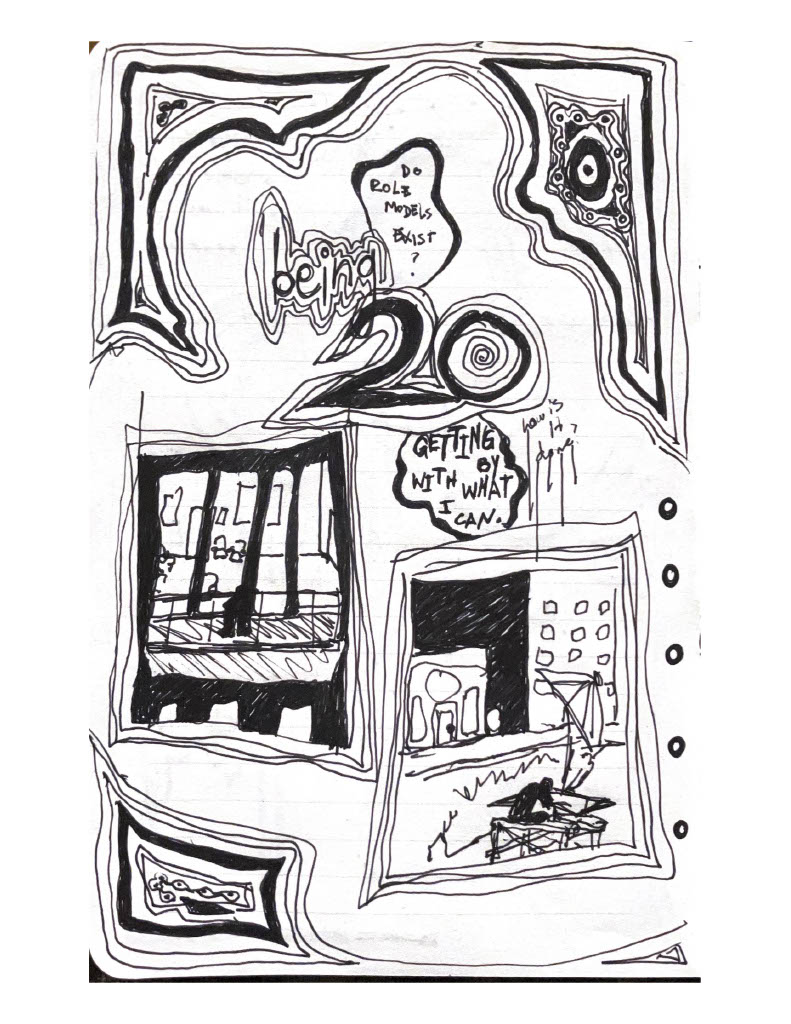 DO
ROLE
MODELS
EXIST
?
being
20
GETTING
BY
WITH WHAT
I
CAN.
how is
it
done?